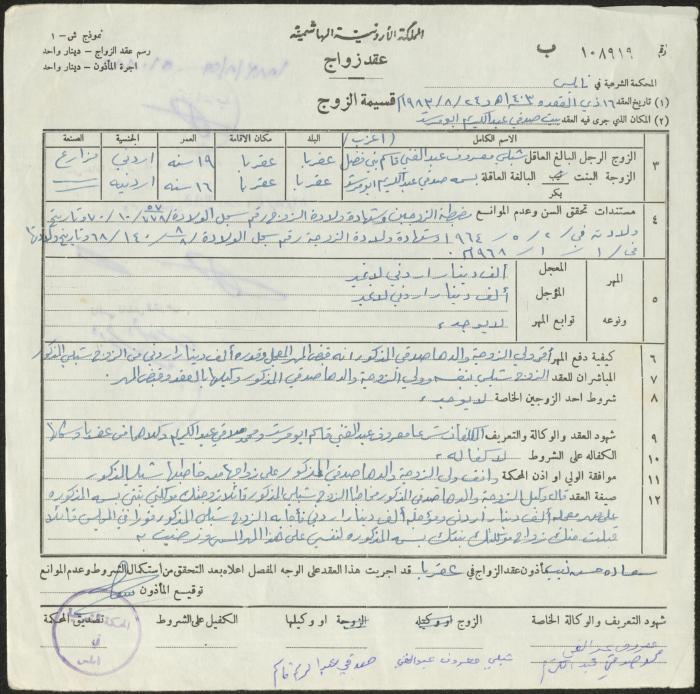 المملكة الأردنية الهاشمية
نموذج ش - ١
رقم ١٠٨٩١٩ ب
عقد زواج
رسم عقد الزواج - دينار واحد
اجرة المأذون - دينار واحد
المحكمة الشرعية في نابلس
(١) تاريخ العقد ١٦ ذي القعدة ١٤٠٣هـ ٢٤/٨/١٩٨٣م قسيمة الزوج
(٢) المكان الذي جرى فيه العقد بيت صدقي عبد الكريم ابو مرشد
الاسم الكامل (اعزب) البلد مكان الاقامة العمر الجنسية الصنعة
٣ الزوج الرجل البالغ العاقل شبلي معروف عبد الغني قاسم بني فضل عقربا عقربا ١٩ سنه اردني مزارع
الزوجة البنت البالغة العاقلة بسمه صدقي عبد الكريم ابو مرشد عقربا عقربا ١٦ سنه اردنيه
بكر
٤ مستندات تحقق السن وعدم الموانع مضبطة الزوجين وشهادة ولادة الزوج رقم سجل الولادة وتاريخ
ولادته في ٢ / ٥ / ١٩٦٤ وشهادة ولادة الزوجة رقم سجل الولادة وتاريخ ولادتها
في ١ / ١ / ١٩٦٨
٥ المهر المعجل ألف دينار اردني لا غير
المؤجل ألف دينار اردني لا غير
ونوعه توابع المهر لا يوجد
٦ كيفية دفع المهر أقر ولي الزوجة والدها صدقي المذكور انه قبض المهر المعجل وقدره ألف دينار اردني من الزوج شبلي المذكور
٧ المباشران للعقد الزوج شبلي بنفسه وولي الزوجة والدها صدقي المذكور وكيلها بالعقد وقبض المهر
٨ شروط احد الزوجين الخاصة لا يوجد
٩ شهود العقد والوكالة والتعريف المكلفان شرعا معروف عبد الغني قاسم ابو مرشد ومحمد صدقي عبد الكريم وكلاهما من عقربا وسكانها
١٠ الكفالة على الشروط لا كفاله
١١ موافقة الولي او اذن المحكمة وافق ولي الزوجة والدها صدقي المذكور على زواجها من خاطبها شبلي المذكور
١٢ صفة العقد قال وكيل الزوجة والدها صدقي المذكور مخاطبا الزوج شبلي المذكور قائلا زوجتك موكلتي بنتي بسمه المذكوره
على مهر معجله ألف دينار أردني ومؤجله ألف دينار اردني فأجابه الزوج شبلي المذكور فورا في المجلس قائلا
قبلت منك زواج موكلتك بنتك بسمه المذكوره لنفسي على هذا المهر المسمى ورضيت به
مأذون عقد الزواج في عقربا قد اجريت هذا العقد على الوجه المفصل اعلاه بعد التحقق من استكمال الشروط وعدم الموانع
توقيع المأذون
شهود التعريف والوكالة الخاصة الزوج او وكيله الزوجة او وكيلها الكفيل على الشروط تصديق المحكمة
معروف عبد الغني
محمد صدقي عبد الكريم
شبلي معروف عبد الغني
صدقي عبد الكريم قاسم
المحكمة
في
نابلس